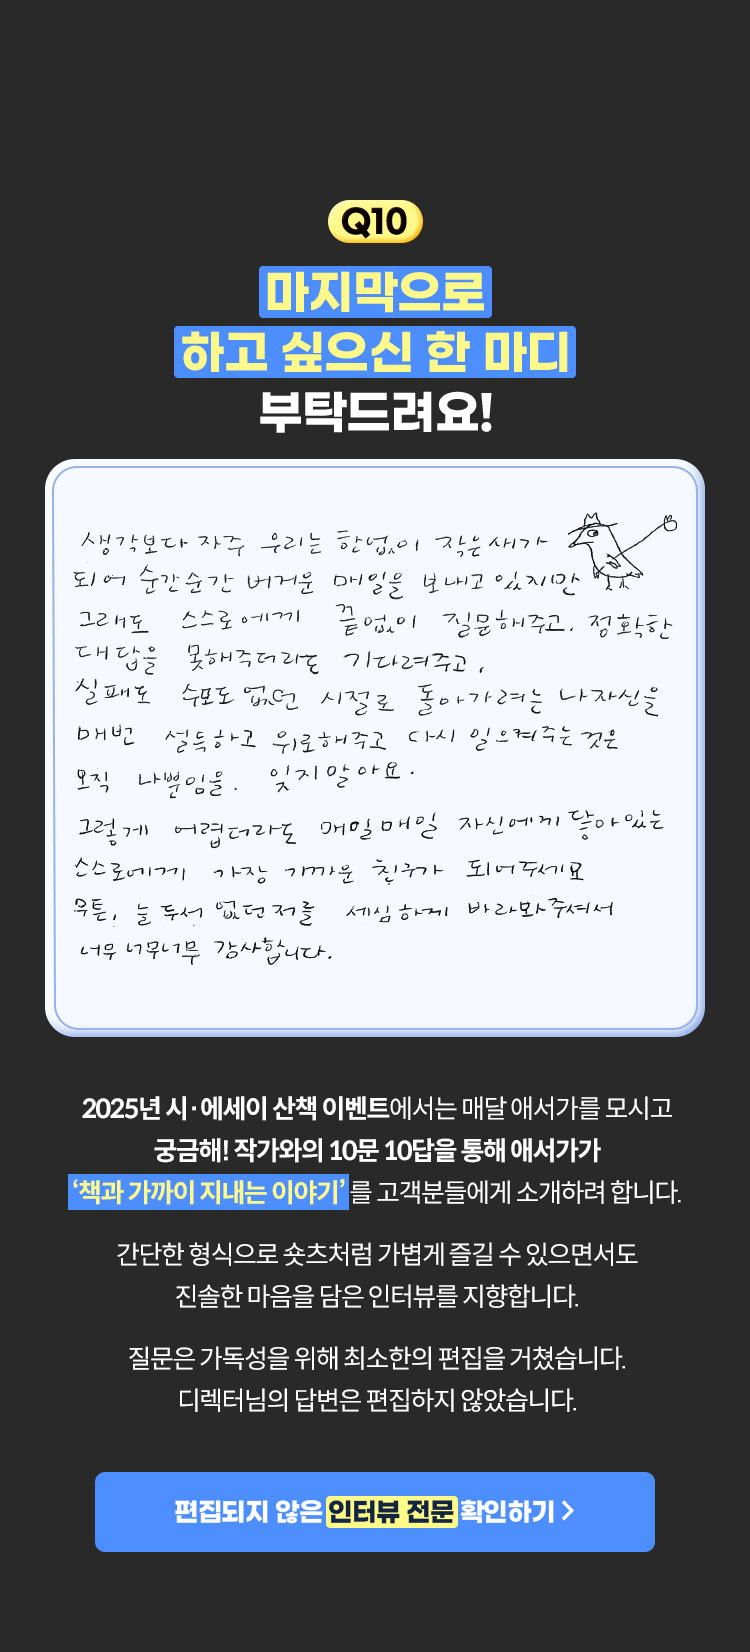 Q10
마지막으로
하고 싶으신 한 마디
부탁드려요!
생각보다 자주 우리는 한없이 작은새가
되어 순간순간 버거운 매일을 보내고 있지만
그래도 스스로에게 끝없이 질문해주고. 정확한
대답을 못해주더라도 기다려주고,
실패도 수포도 없던 시절로 돌아가려는 나자신을
매번 설득하고 위로해주고 다시 일으켜주는 것은
오직 나뿐임을. 잊지말아요.
그렇게 어렵더라도 매일매일 자신에게 닿아있는
스스로에게 가장 가까운 친구가 되어주세요
무튼, 늘 두서 없던 저를 세심하게 바라봐주셔서
너무 너무너무 감사합니다.
2025년 시·에세이 산책 이벤트에서는 매달 애서가를 모시고
궁금해! 작가와의 10문 10답을 통해 애서가가
‘책과 가까이 지내는 이야기’를 고객분들에게 소개하려 합니다.
간단한 형식으로 숏츠처럼 가볍게 즐길 수 있으면서도
진솔한 마음을 담은 인터뷰를 지향합니다.
질문은 가독성을 위해 최소한의 편집을 거쳤습니다.
디렉터님의 답변은 편집하지 않았습니다.
편집되지 않은 인터뷰 전문 확인하기 >